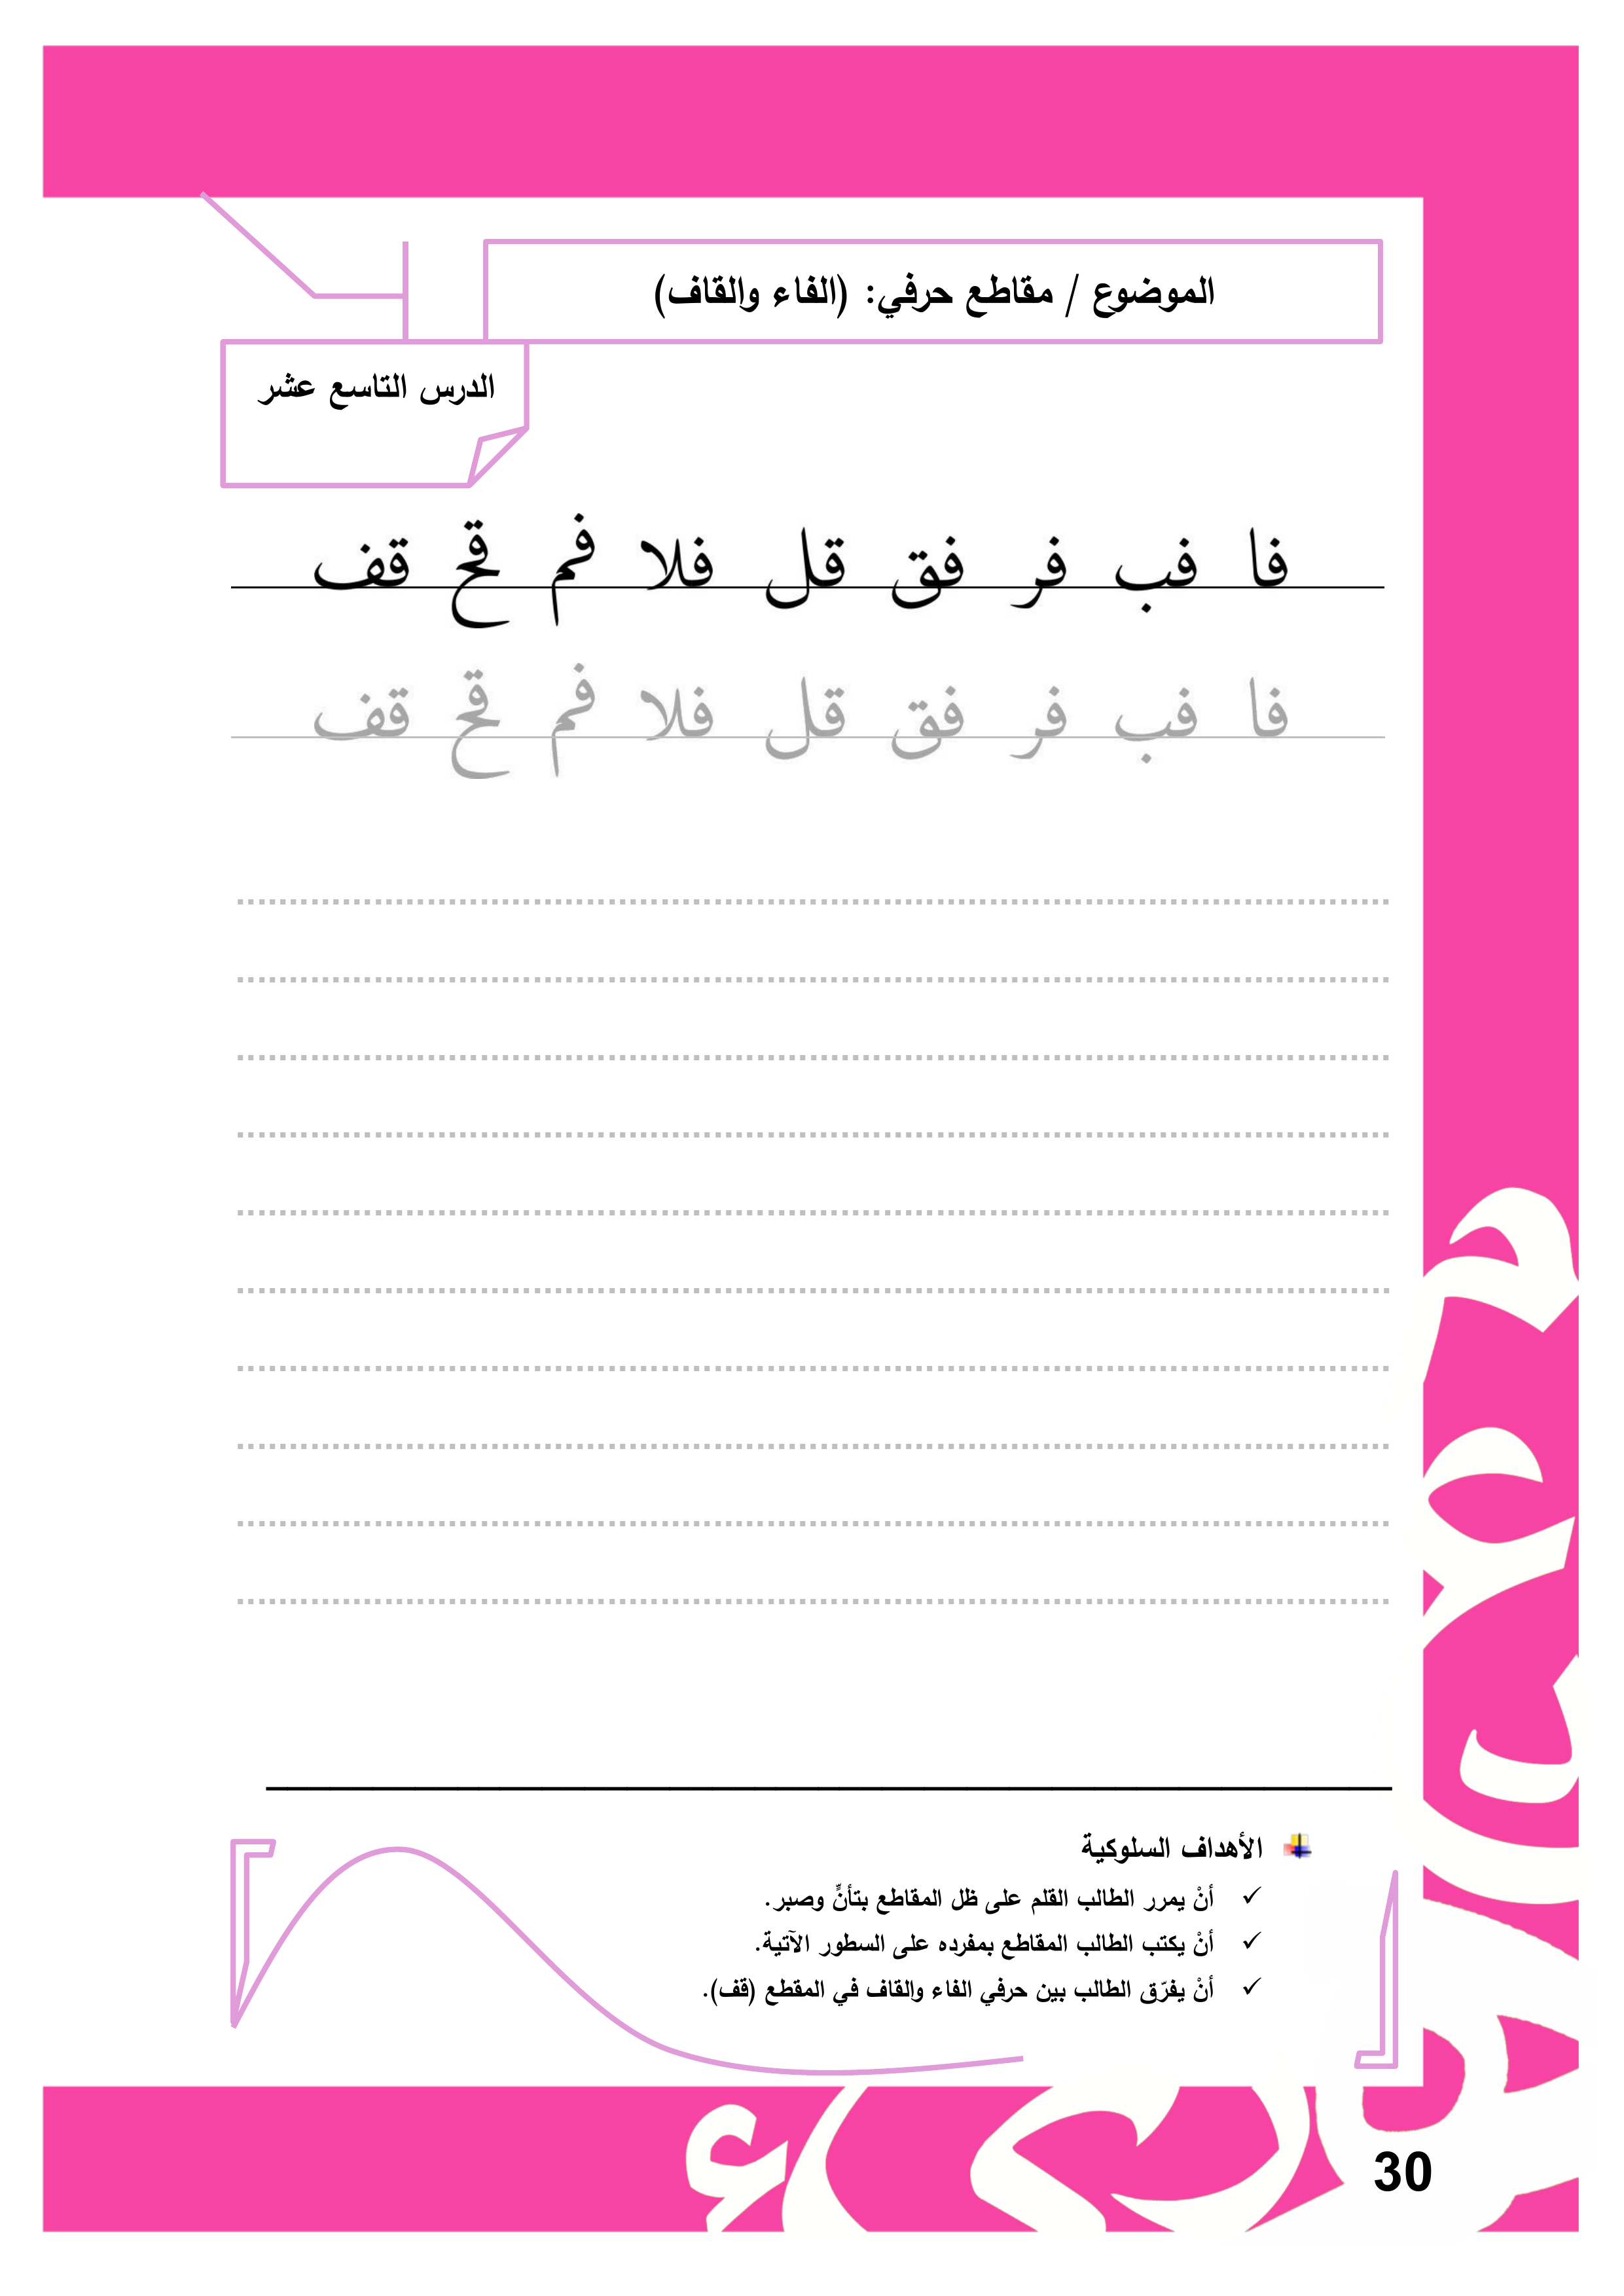 الموضوع / مقاطع حرفي: (الفاء والقاف)
الدرس التاسع عشر
فا فب فر فق قل فلا فم قح قف
فا فب فر فق قل فلا فم قح قف
الأهداف السلوكية
أنْ يمرر الطالب القلم على ظل المقاطع بتأنٍّ وصبر.
أنْ يكتب الطالب المقاطع بمفرده على السطور الآتية.
أنْ يفرّق الطالب بين حرفي الفاء والقاف في المقطع (قف).
30